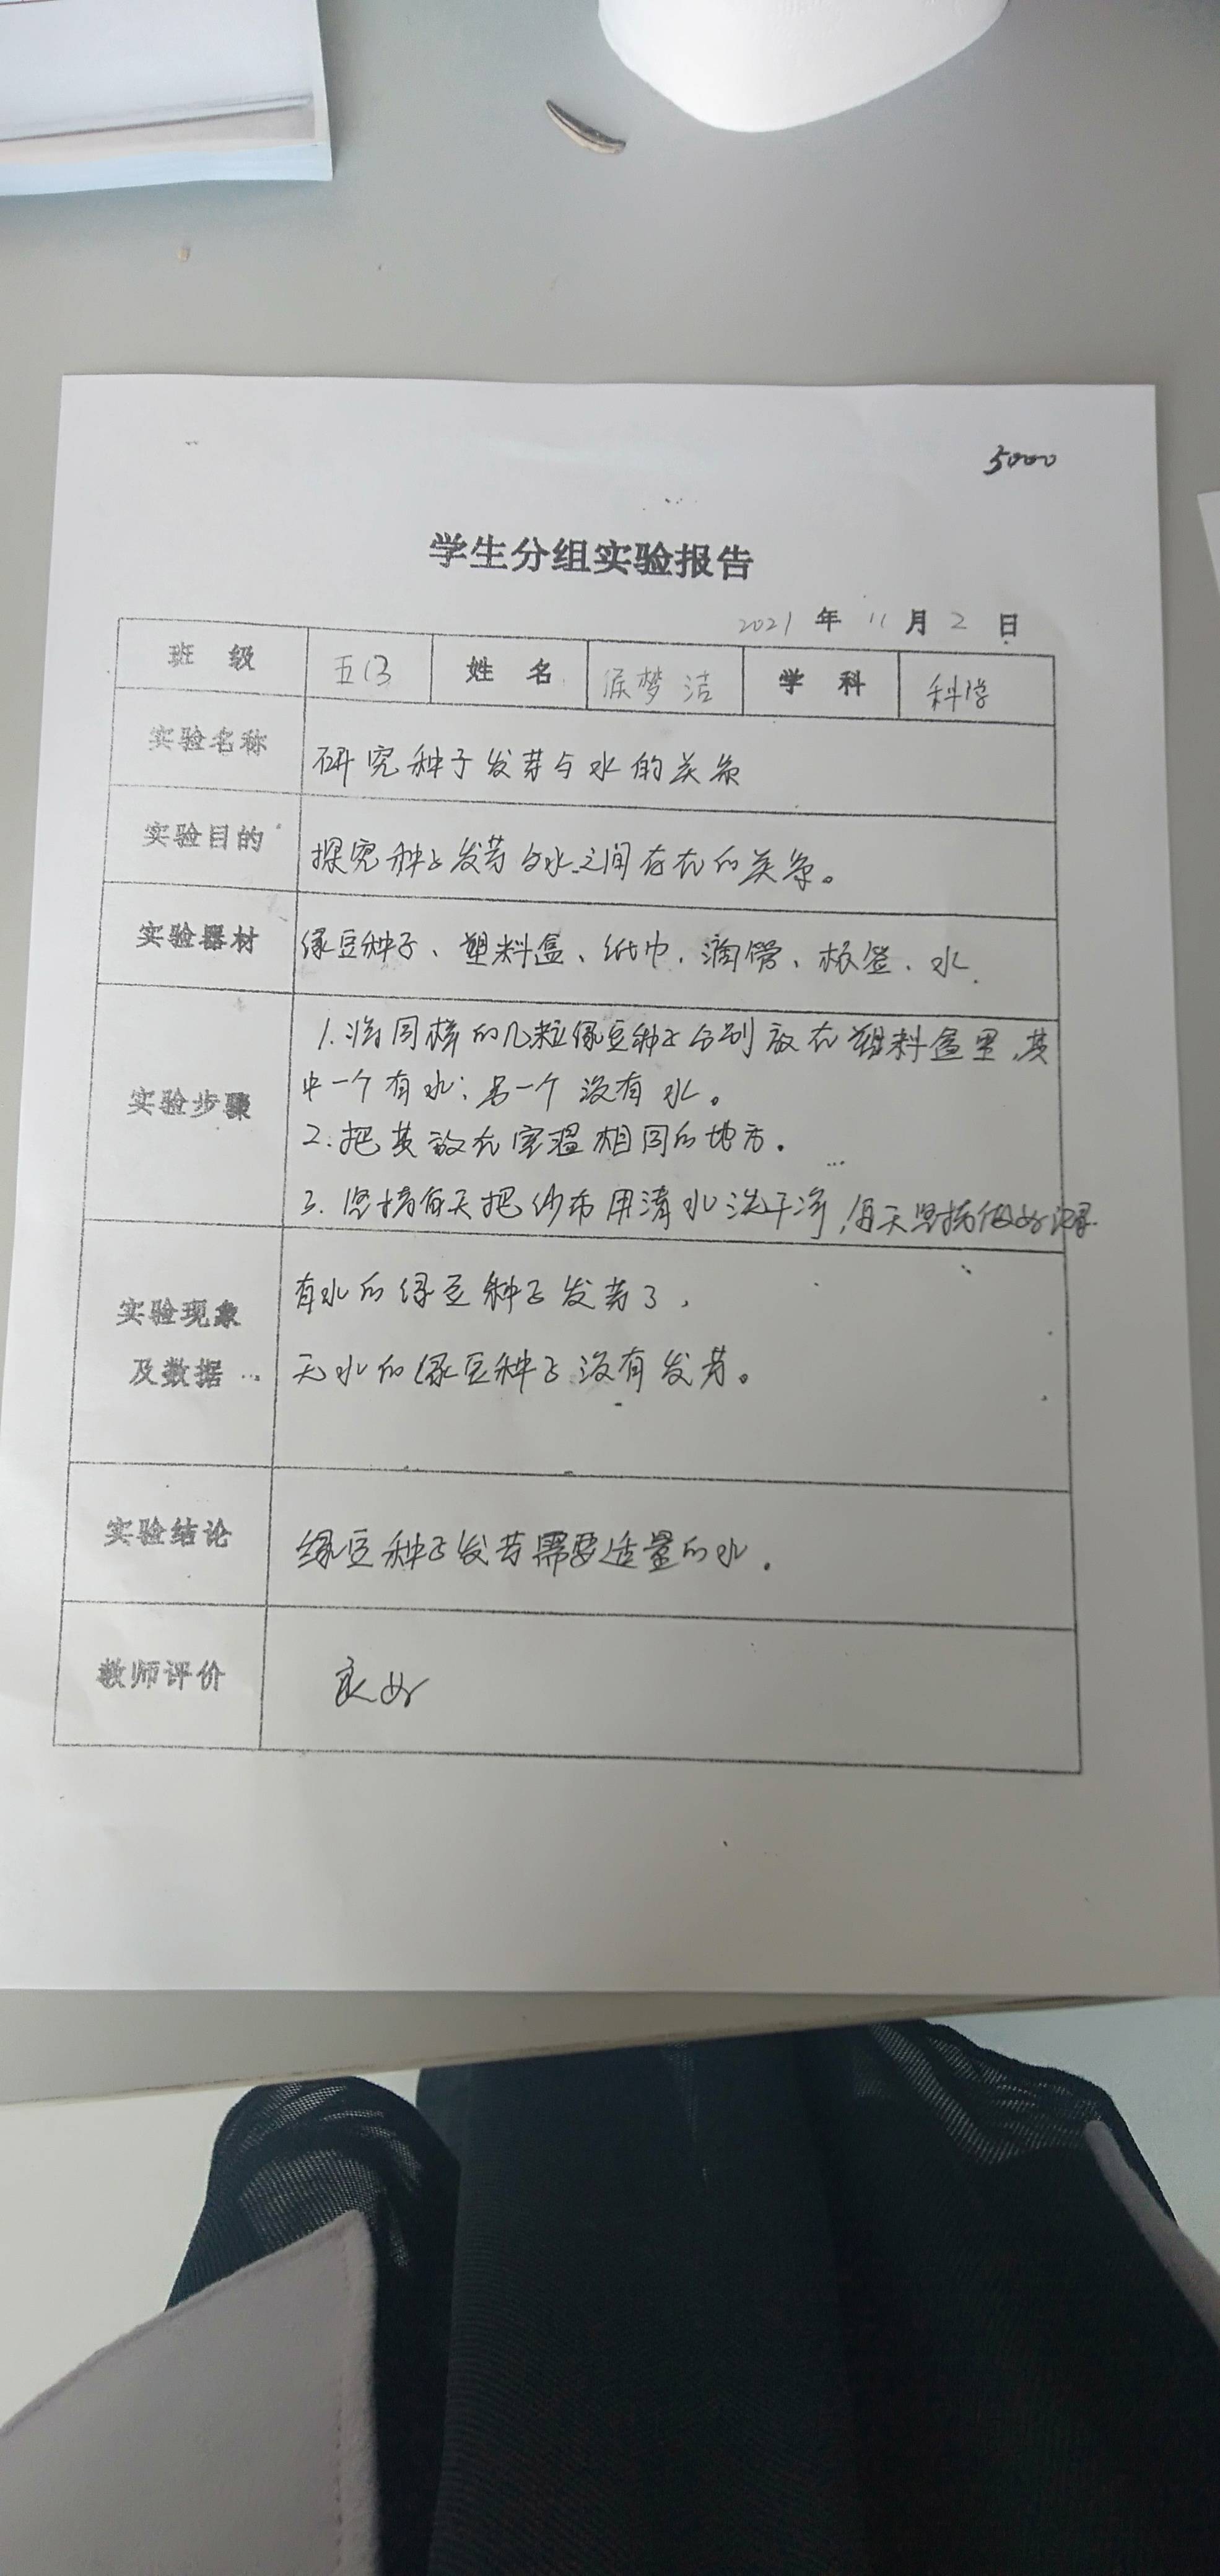 5000
学生分组实验报告
2021 年 11 月 2 日
班 级 五(3 姓 名 侯梦洁 学 科 科学
实验名称 研究种子发芽与水的关系
实验目的 探究种子发芽与水之间存在的关系。
实验器材 绿豆种子、塑料盒、纸巾、滴管、标签、水
实验步骤
1.将同样的几粒绿豆种子分别放在塑料盒里,其
中一个有水;另一个没有水。
2.把其放在室温相同的地方。
3.坚持每天把纱布用清水洗干净,每天坚持做好记录
实验现象
及数据
有水的绿豆种子发芽了,
无水的绿豆种子没有发芽。
实验结论 绿豆种子发芽需要适量的水.
教师评价 良好